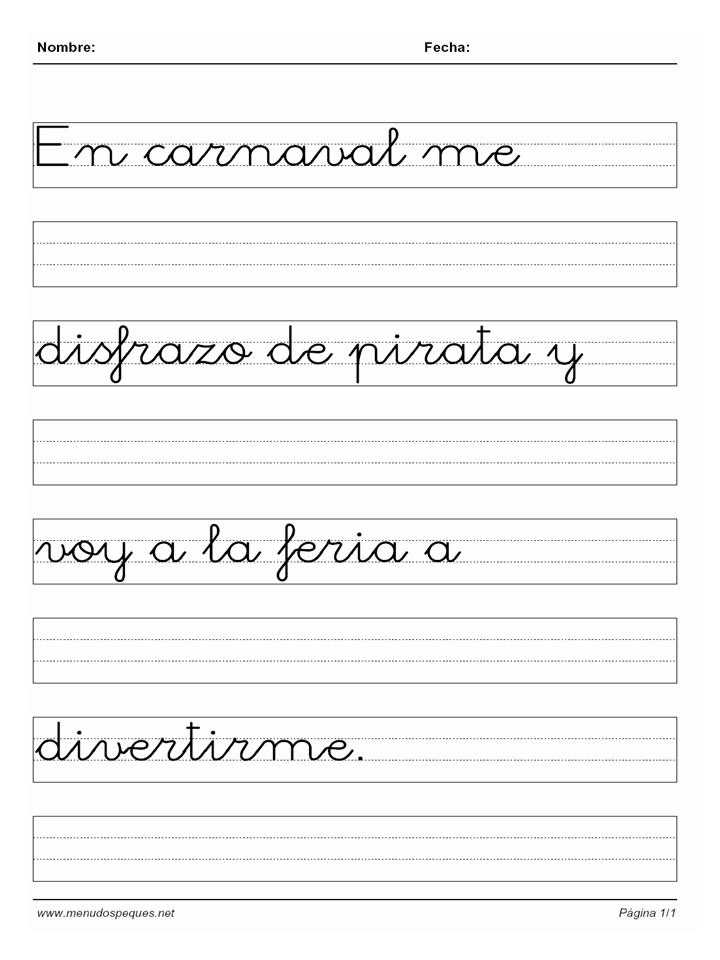 Nombre: Fecha:
En carnaval me
disfrazo de pirata y
voy a la feria a
divertirme.
www.menudospeques.net Página 1/1